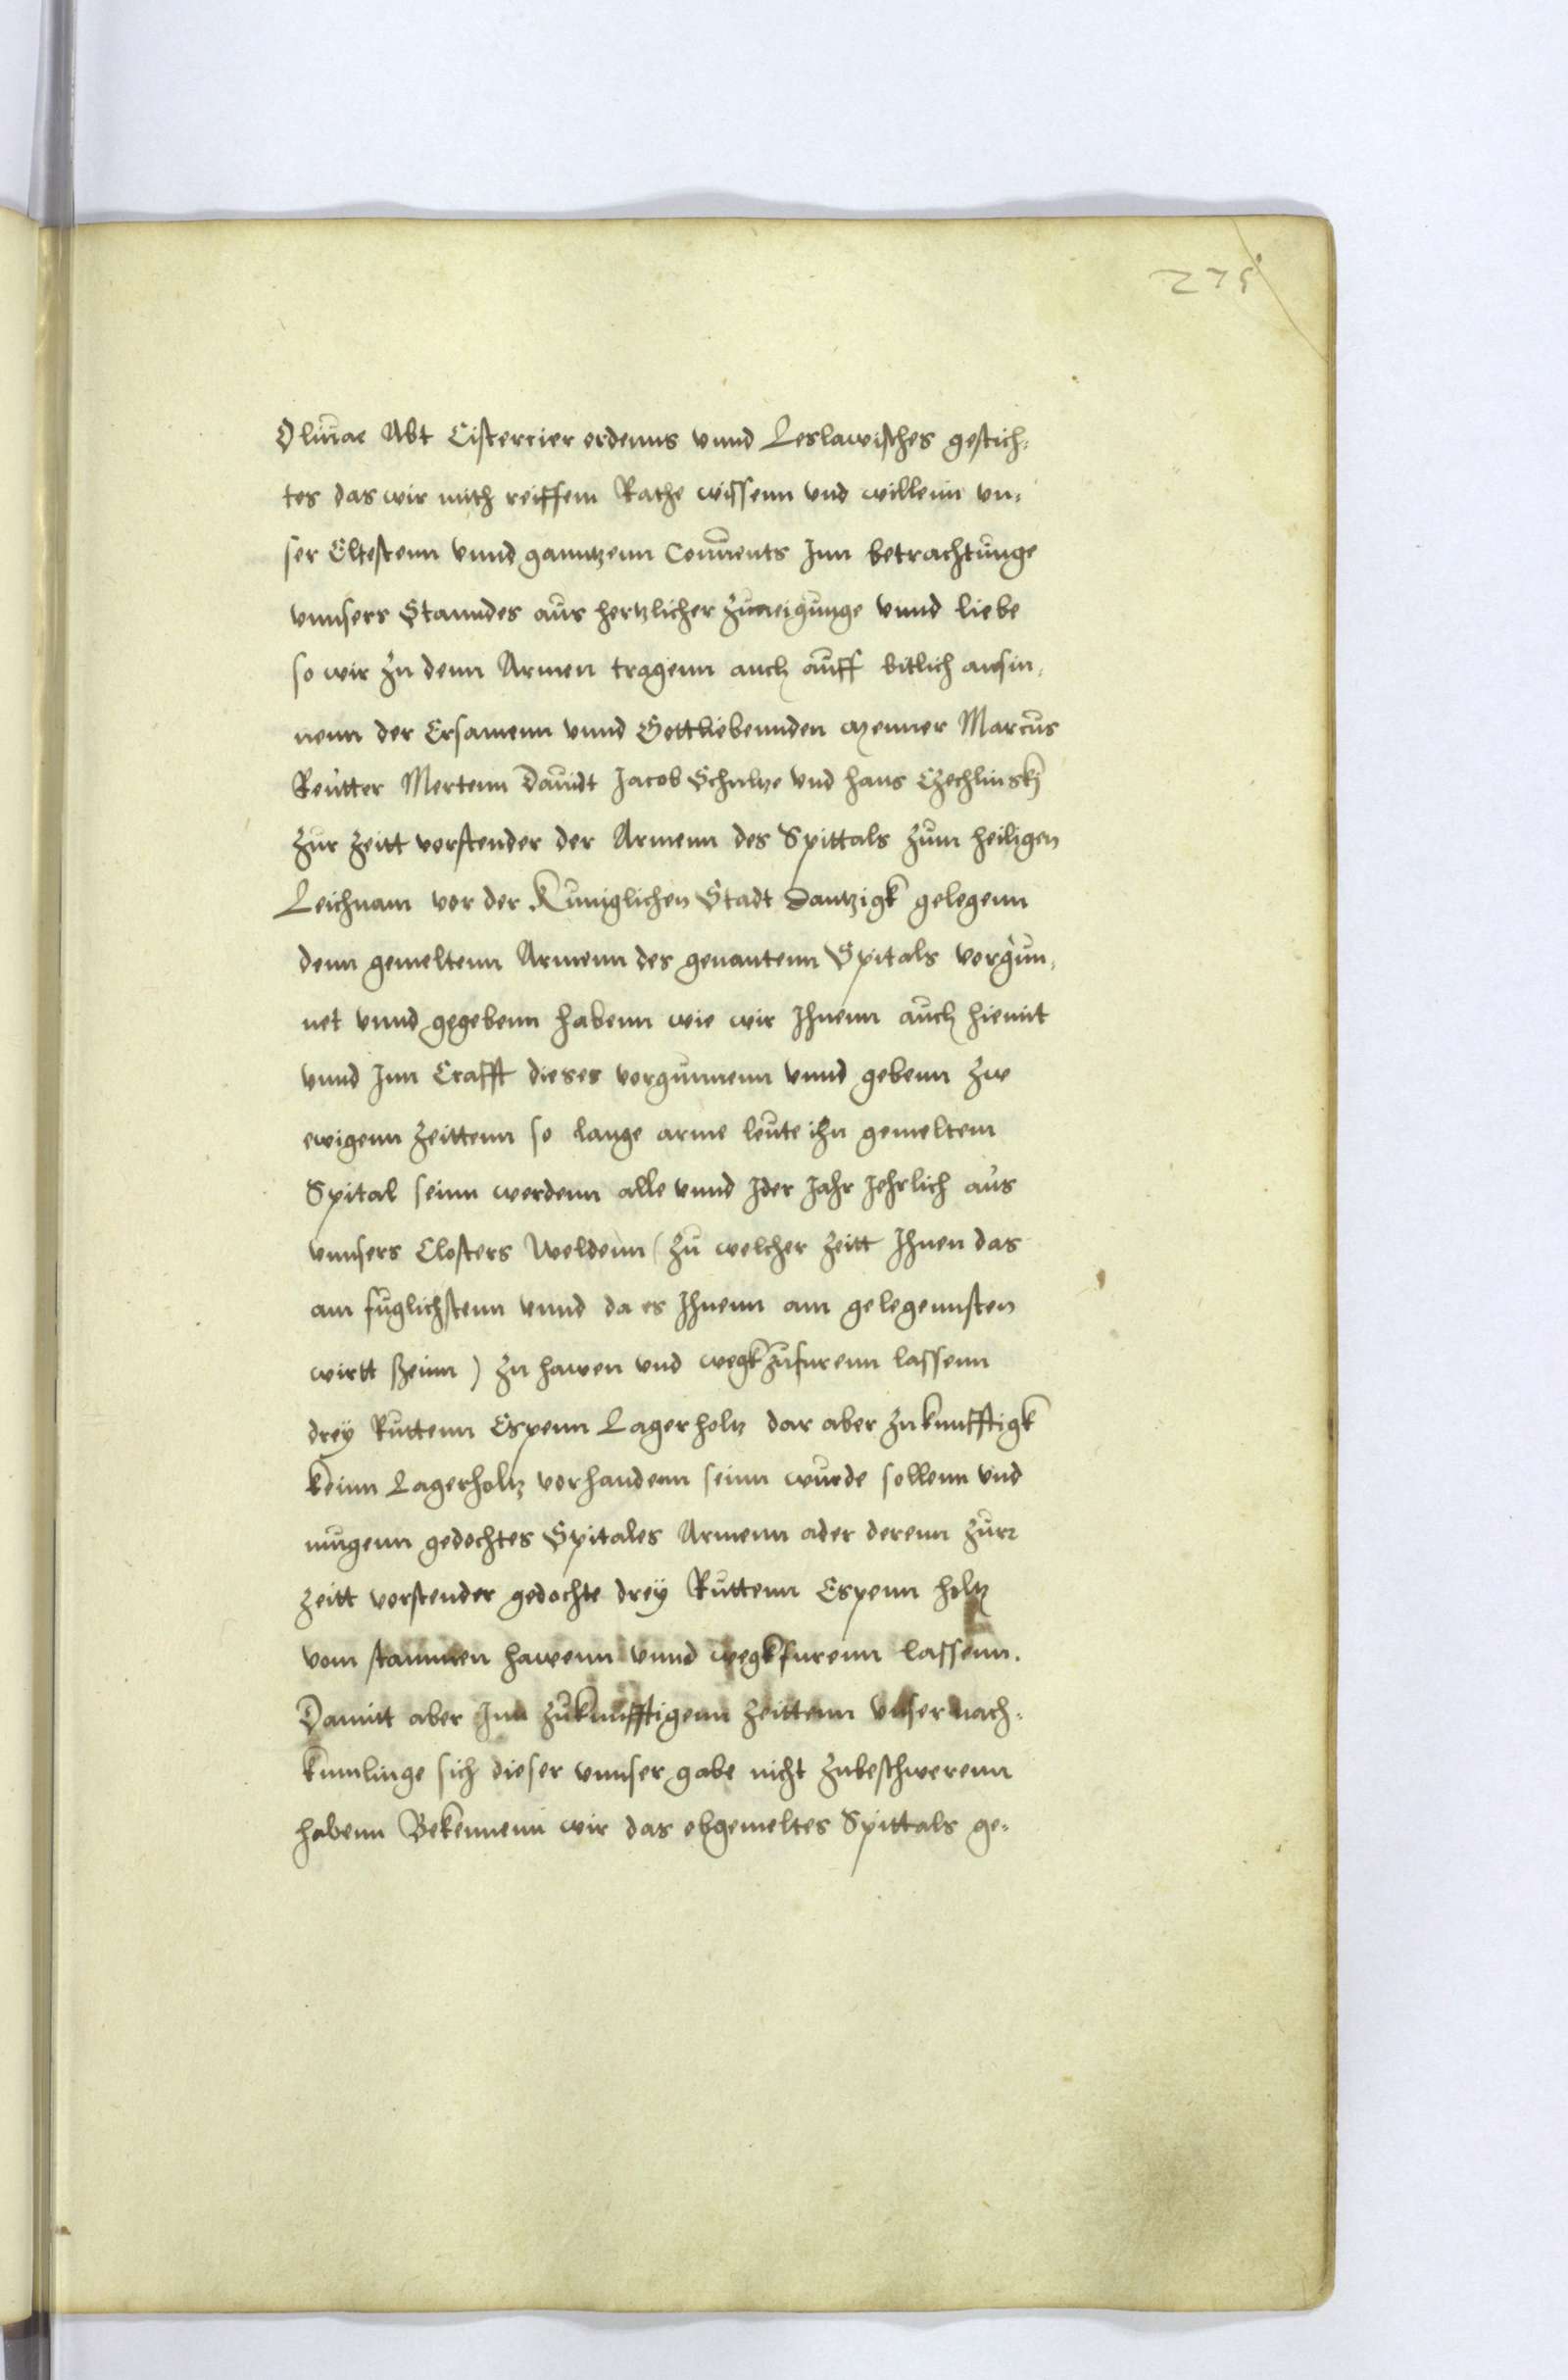 275
Oliuae Abt Cistercier ordenns vnnd Leslawisches gestich-
tes das wir mith reiffem Rathe wissenn vnd willenn vn-
ser Eltestenn vnnd ganntzenn Conuents Inn betrachtunge
vnnsers Stanndes aus hertzlicher zuneigunge vnnd liebe
so wir zu denn Armen tragenn auch auff bitlich ansin-
nenn der Ersamenn vnnd Gottliebennden menner Marcus
Reutter Mertenn Dauidt Jacob Schultze vnd hans Czechlinskj
zur zeitt vorstender der Armenn des Spittals zum heiligen
Leichnam vor der Kuniglichen Stadt Dantzigk gelegenn
denn gemeltenn Armenn des genantenn Spitals vorgun-
net vnnd gegebenn habenn wie wir Ihnenn auch hiemit
vnnd Inn Crafft dieses vorgunnenn vnnd gebenn zw
ewigenn zeittenn so lange arme leute ihn gemeltem
Spital seinn werdenn alle vnnd Ider Jahr Jehrlich aus
vnnsers Closters Weldenn (zu welcher zeitt Ihnen das
am fuglichstenn vnnd da es Ihnenn am gelegennsten
wirtt szeinn) zu hawen vnd wegkzufurenn lassenn
drey Ruttenn Espenn Lagerholtz dar aber zukunfftigk
keinn Lagerholtz vorhandenn seinn wurde sollenn vnd
mugenn gedochtes Spitales Armenn ader derenn zurr
zeitt vorstender gedochte drey Ruttenn Espenn holtz
vom stammen hawenn vnnd wegkfurenn lassenn.
Damitt aber Inn zukunfftigenn zeittenn vnser nach-
kumlinge sich dieser vnnser gabe nicht zubeschwerenn
habenn Bekennenn wir das obgemeltes Spittals ge-